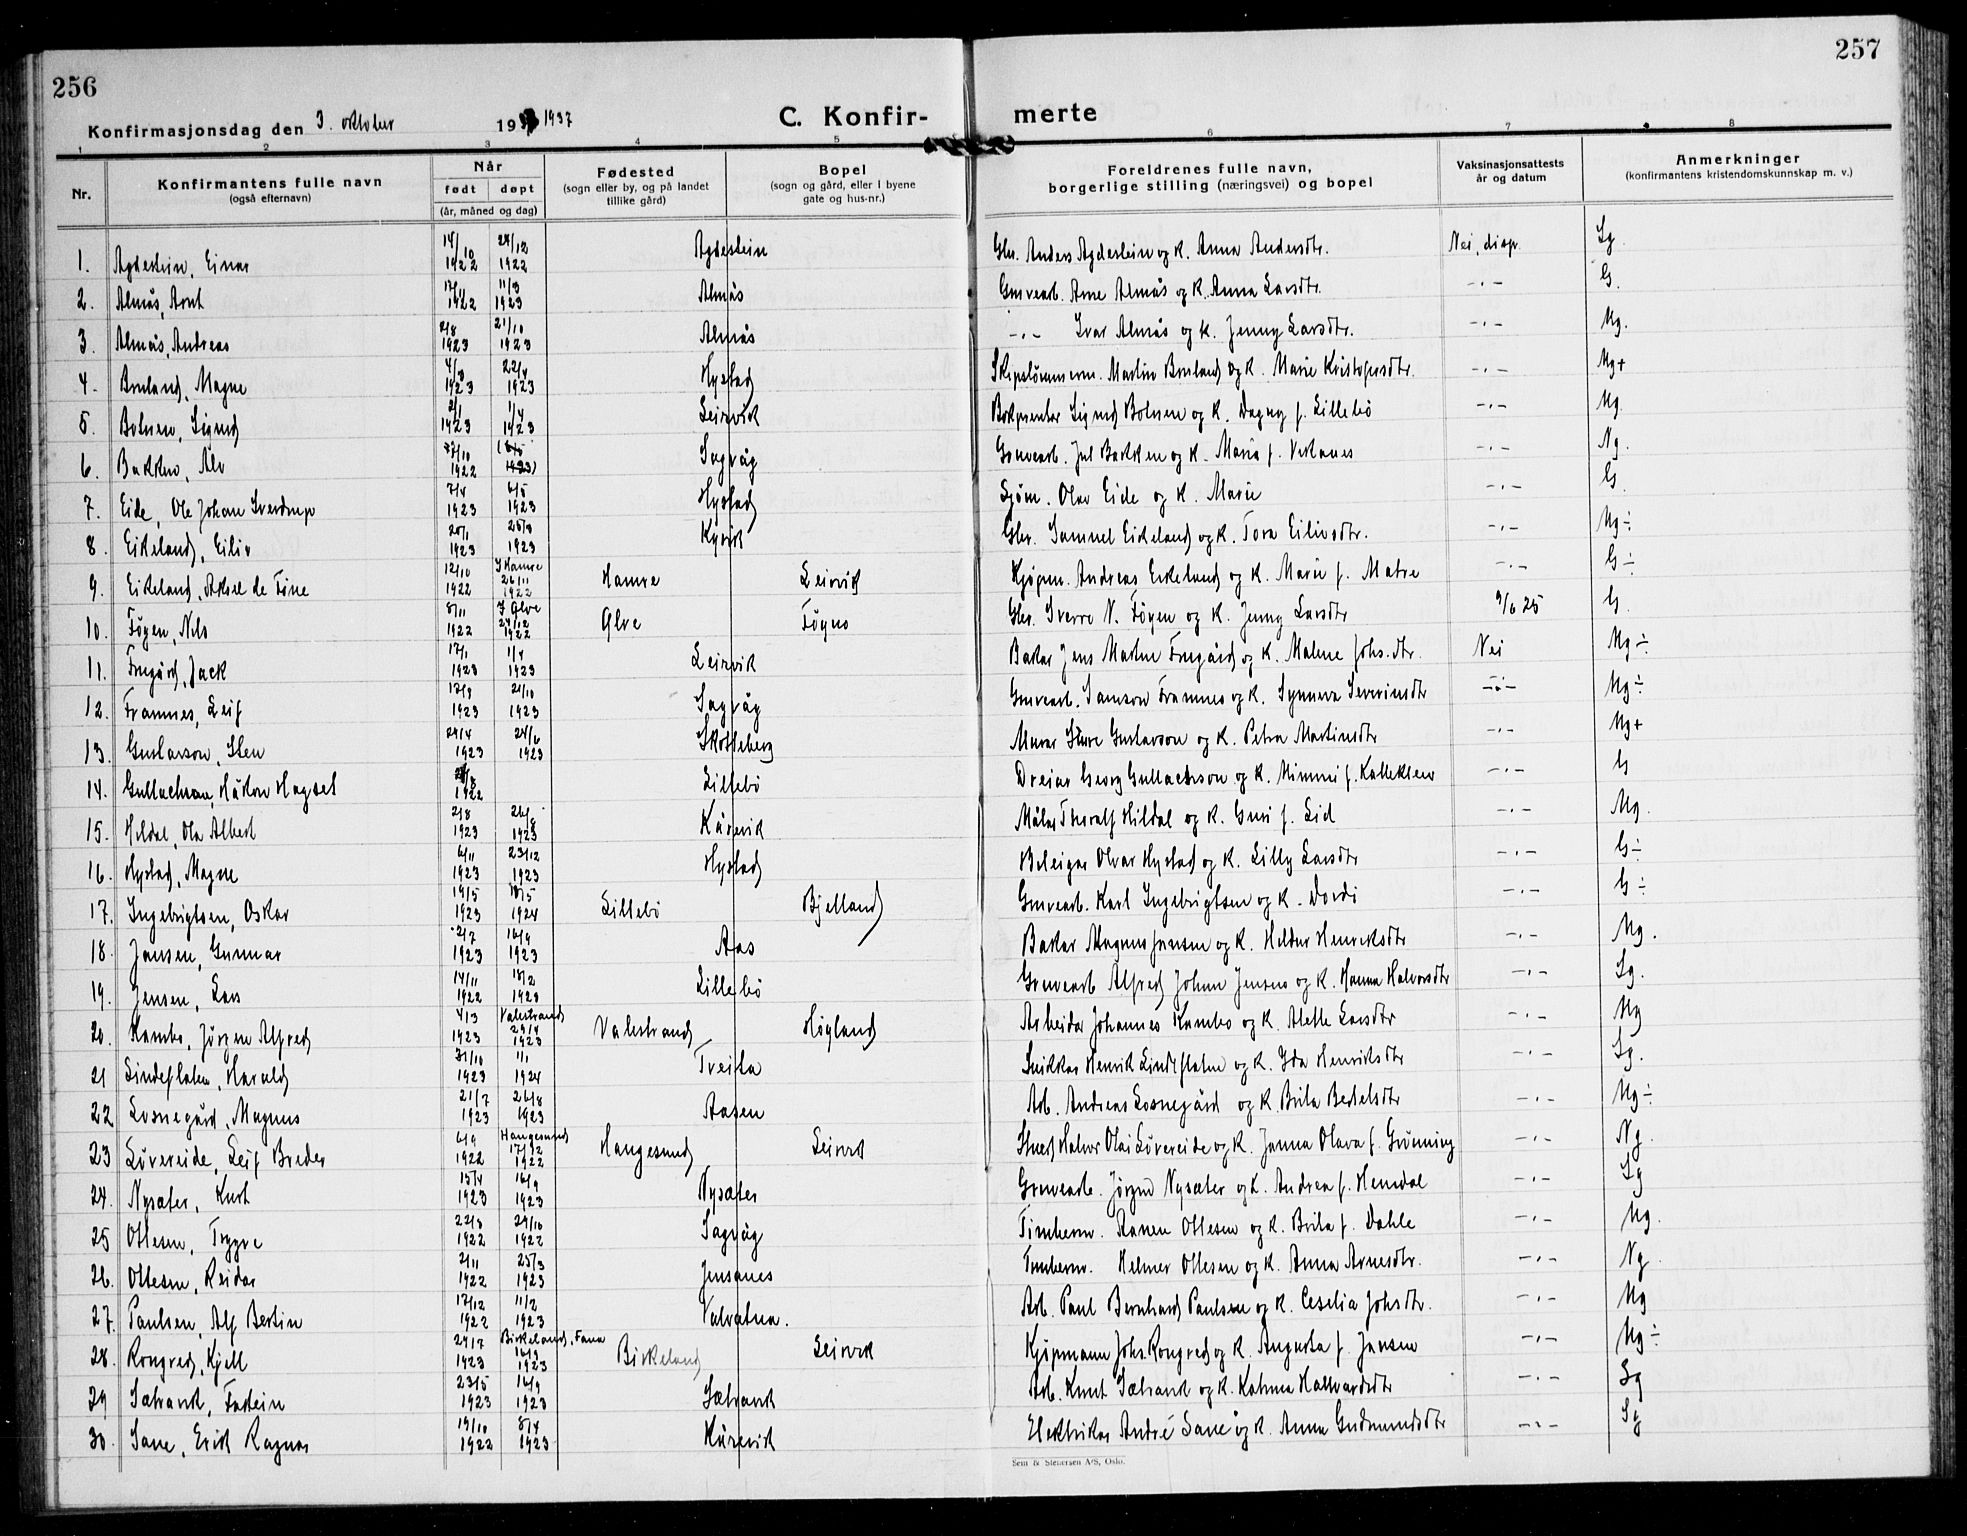 256
257
Konfirmasjonsdag den 3. oktober 1937
C. Konfir- merte
1 2 3 4 5 6 7 8
Nr.
Konfirmantens fulle navn
(også efternavn)
Når
født døpt
(år, måned og dag)
Fødested
(sogn eller by, og på landet
tillike gård)
Bopel
(sogn og gård, eller i byene
gate og hus-nr.)
Foreldrenes fulle navn,
borgerlige stilling (næringsvei) og bopel
Vaksinasjonsattests
år og datum
Anmerkninger
(konfirmantens kristendomskunnskap m. v.)
1. Agdestein, Einar 14/10 1922 24/12 1922 Agdestein Gbr. Anders Agdestein og k. Anna Andersdtr. Nei, disp. Sg.
2. Almås, Arnt 1922 11/3 1923 Almås Gruvearb. Arne Almås og k. Anna Larsdtr. -,- G.
3. Almås, Andreas 2/8 1923 21/10 1923 Almås -,- Ivar Almås og k. Jenny Larsdtr. -,- Mg.
4. Magne 4/3 1923 22/4 1923 Hystad Martin og k. Marie Kristofersdtr. -,- Mg+
5. Sigurd 2/1 1923 1/4 1923 Leirvik Sigurd og k. Dagny f. Lillebø -,- Mg
6. Bakken, Alv 1922 Sagvåg Gruvearb. Jul Bakken og k. Maria f. Vikanes -,- Ng.
7. Eide, Ole Johan Sverdrup 7/4 1923 6/5 1923 Hystad Sjøm. Olav Eide og k. Marie -,- G.
8. Eikeland, Eiliv 20/1 1923 25/3 1923 Kyvik Gbr. Samuel Eikeland og k. Tora Eilivsdtr. -,- Mg÷
9. Eikeland, Aksel de Fine 12/10 1922 I Hamre 26/11 1922 Hamre Leirvik Kjøpm. Andreas Eikeland og k. Marie f. Matre -,- G÷
10. Føyen, Nils 8/11 1922 I Ølve 24/12 1922 Ølve Føyno Gbr. Sverre N. Føyen og k. Jenny Larsdtr 9/6 25 G.
11. Jack 17/1 1923 1/4 1923 Leirvik Baker Jens Martin og k. Malene Johs.dtr. Nei Mg÷
12. Framnes, Leif 17/9 1923 21/10 1923 Sagvåg Gruvearb. Samson Framnes og k. Synneva Severinsdtr -,- Mg÷
13. Gustavson, Sten 29/4 1923 24/6 1923 Skotteberg Murar Sture Gustavson og k. Petra Martinsdtr -,- Mg+
14. Gullachsen, Håkon Hagset 1922 Lillebø Dreiar Georg Gullachsen og k. Mimmi f. -,- G
15. Hildal, Ola Albert 2/8 1923 26/8 1923 Kårevik Målar Thoralf Hildal og k. Guri f. Lid -,- Mg.
16. Hystad, Magne 6/11 1923 23/12 1923 Hystad Olvar Hystad og k. Lilly Larsdtr -,- G÷
17. Ingebrigtsen, Oskar 19/5 1923 18/5 1924 Lillebø Bjelland Gruvearb. Karl Ingebrigtsen og k. Dordi -,- G÷
18. Jansen, Gunnar 2/7 1923 16/9 1923 Aas Baker Magnus Jansen og k. Hildur Henriksdtr -,- Mg.
19. Jensen, Lars 14/11 1922 18/2 1923 Lillebø Gruvearb Alfred Johan Jensen og k. Hanna Halvorsdtr -,- Sg.
20. Kambo, Jørgen Alfred 4/3 1923 Valestrand 29/4 1923 Valestrand Høyland Arbeidar Johannes Kambo og k. Alette Larsdtr -,- Mg
21 Lindeflaten, Harald 31/10 1923 1/1 1924 Treita Snikkar Henrik Lindeflaten og k. Ida Henriksdtr -,- Sg.
22 Losnegård, Magnus 21/7 1923 26/8 1923 Aasen Arb. Andreas Losnegård og k. Brita Bertelsdtr -,- Mg÷
23 Løvereide, Leif Breder 6/9 1922 Haugesund 17/12 1922 Haugesund Leirvik Halvor Olai Løvereide og k. Janna Olava f. Grønning -,- Ng.
24. Nysæter, Kurt 15/4 1923 16/9 1923 Nysæter Gruvearb. Jørgen Nysæter og k. Andrea f. Hemdal -,- Sg
25 Ottesen, Trygve 22/8 1922 29/10 1922 Sagvåg Timberm. Aanen Ottesen og k. Brita f. Dahle -,- Mg.
26. Ottesen, Reidar 2/11 1922 25/3 1923 Jensanes Timberm. Helmer Ottesen og k. Anna Arnesdtr. -,- Ng.
27. Paulsen, Alf Bertin 17/12 1922 11/2 1923 Valvatna. Arb. Paul Bernhard Paulsen og k. Cecelia Johsdtr. -,- Mg
28. Rongved, Kjell 24/7 1923 Birkeland, Fana 16/9 1923 Birkeland Leirvik Kjøpmann Johs. Rongved og k. Augusta f. Jansen -,- Mg÷
29 Sætravik, Torstein 23/5 1923 16/9 1923 Sætravik Arb. Knut Sætravik og k. Katrine Hallvardsdtr -,- Sg
30. Sane, Erik Ragnar 19/10 1922 8/4 1923 Kårevik Elektrikar André Sane og k. Anna Gudmundsdtr -,- Sg
Sem & Stenersen A/S, Oslo.